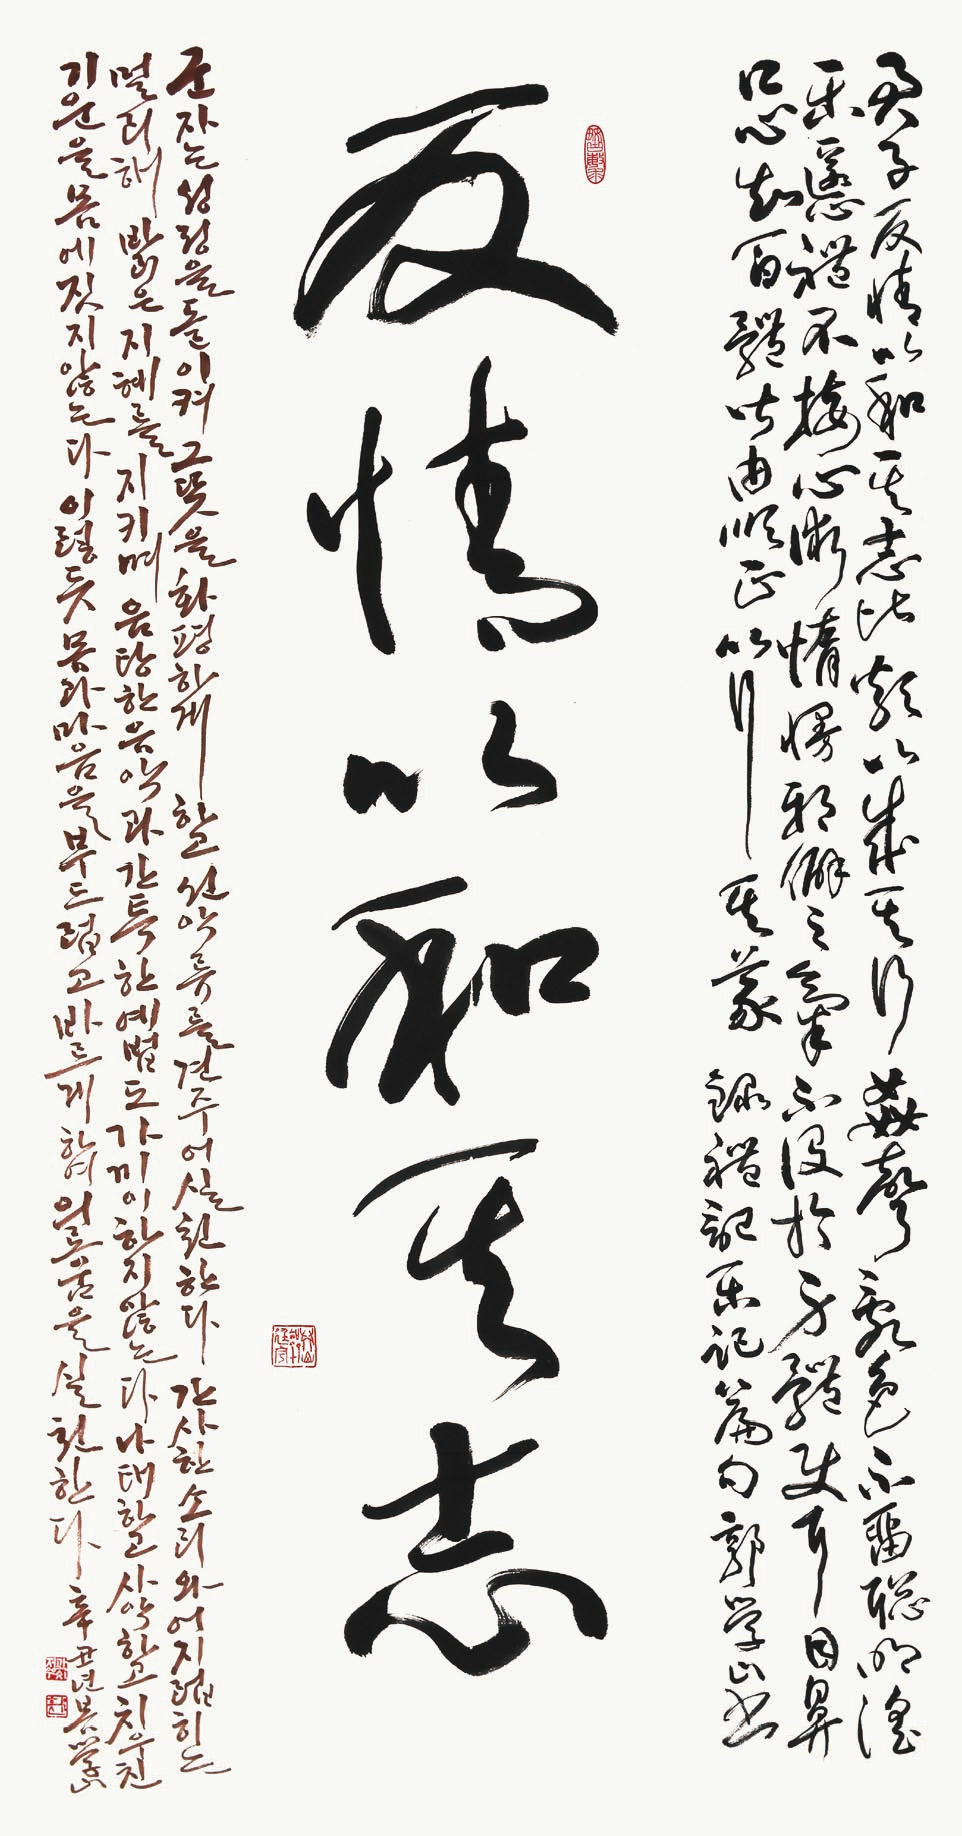 君子反情以和其志比類以成其行 姦聲亂色不留聰明淫
樂慝禮不接心術惰慢邪僻之氣不設於身體使耳目鼻
口心知百體皆由順正以行其義 錄禮記樂記篇句 郭學山書
反情以和其志
군자는 성정을 돌이켜 그 뜻을 화평하게 하고 선악류를 견주어 실천한다 간사한 소리와 어지럽히는
멀리해 밝은 지혜를 지키며 음탕한 음악과 간특한 예법도 가끼이 하지 않는다 나태하고 사악하고 치우친
기운을 몸에 짓지 않는다 이렇듯 몸과 마음을 부드럽고 바르게 하여 의로움을 실천한다 辛丑년 봄 學山